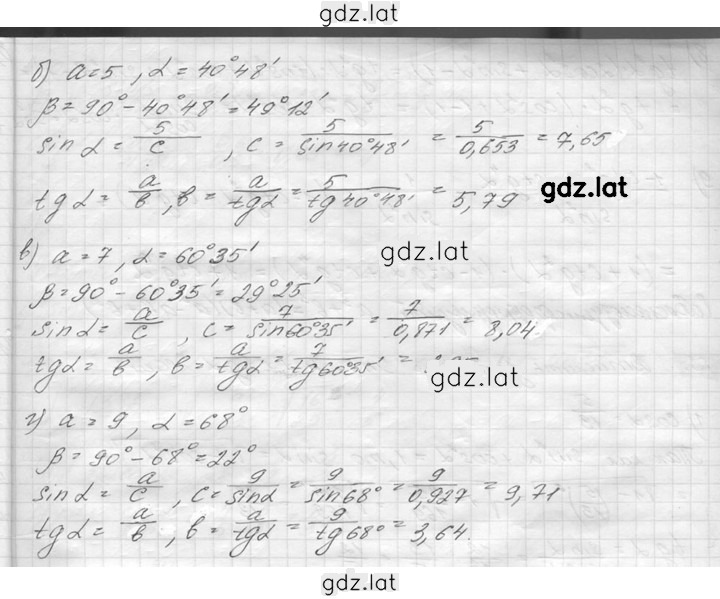 gdz.lat
б) a=5, α=40°48'
β=90°-40°48'=49°12'
sin α = 5/c, c = 5/sin 40°48' = 5/0,653 = 7,65
tg α = a/в, в = a/tg α = 5/tg 40°48' = 5,79
gdz.lat
в) a=7, α=60°35'
gdz.lat
β=90°-60°35'=29°25'
sin α = a/c, c = 7/sin 60°35' = 7/0,871 = 8,04
tg α = a/в, в = a/tg α = 7/tg 60°35' =
gdz.lat
г) a=9, α=68°
β=90°-68°=22°
sin α = a/c, c = 9/sin α = 9/sin 68° = 9/0,927 = 9,71
tg α = a/в, в = a/tg α = 9/tg 68° = 3,64.
gdz.lat